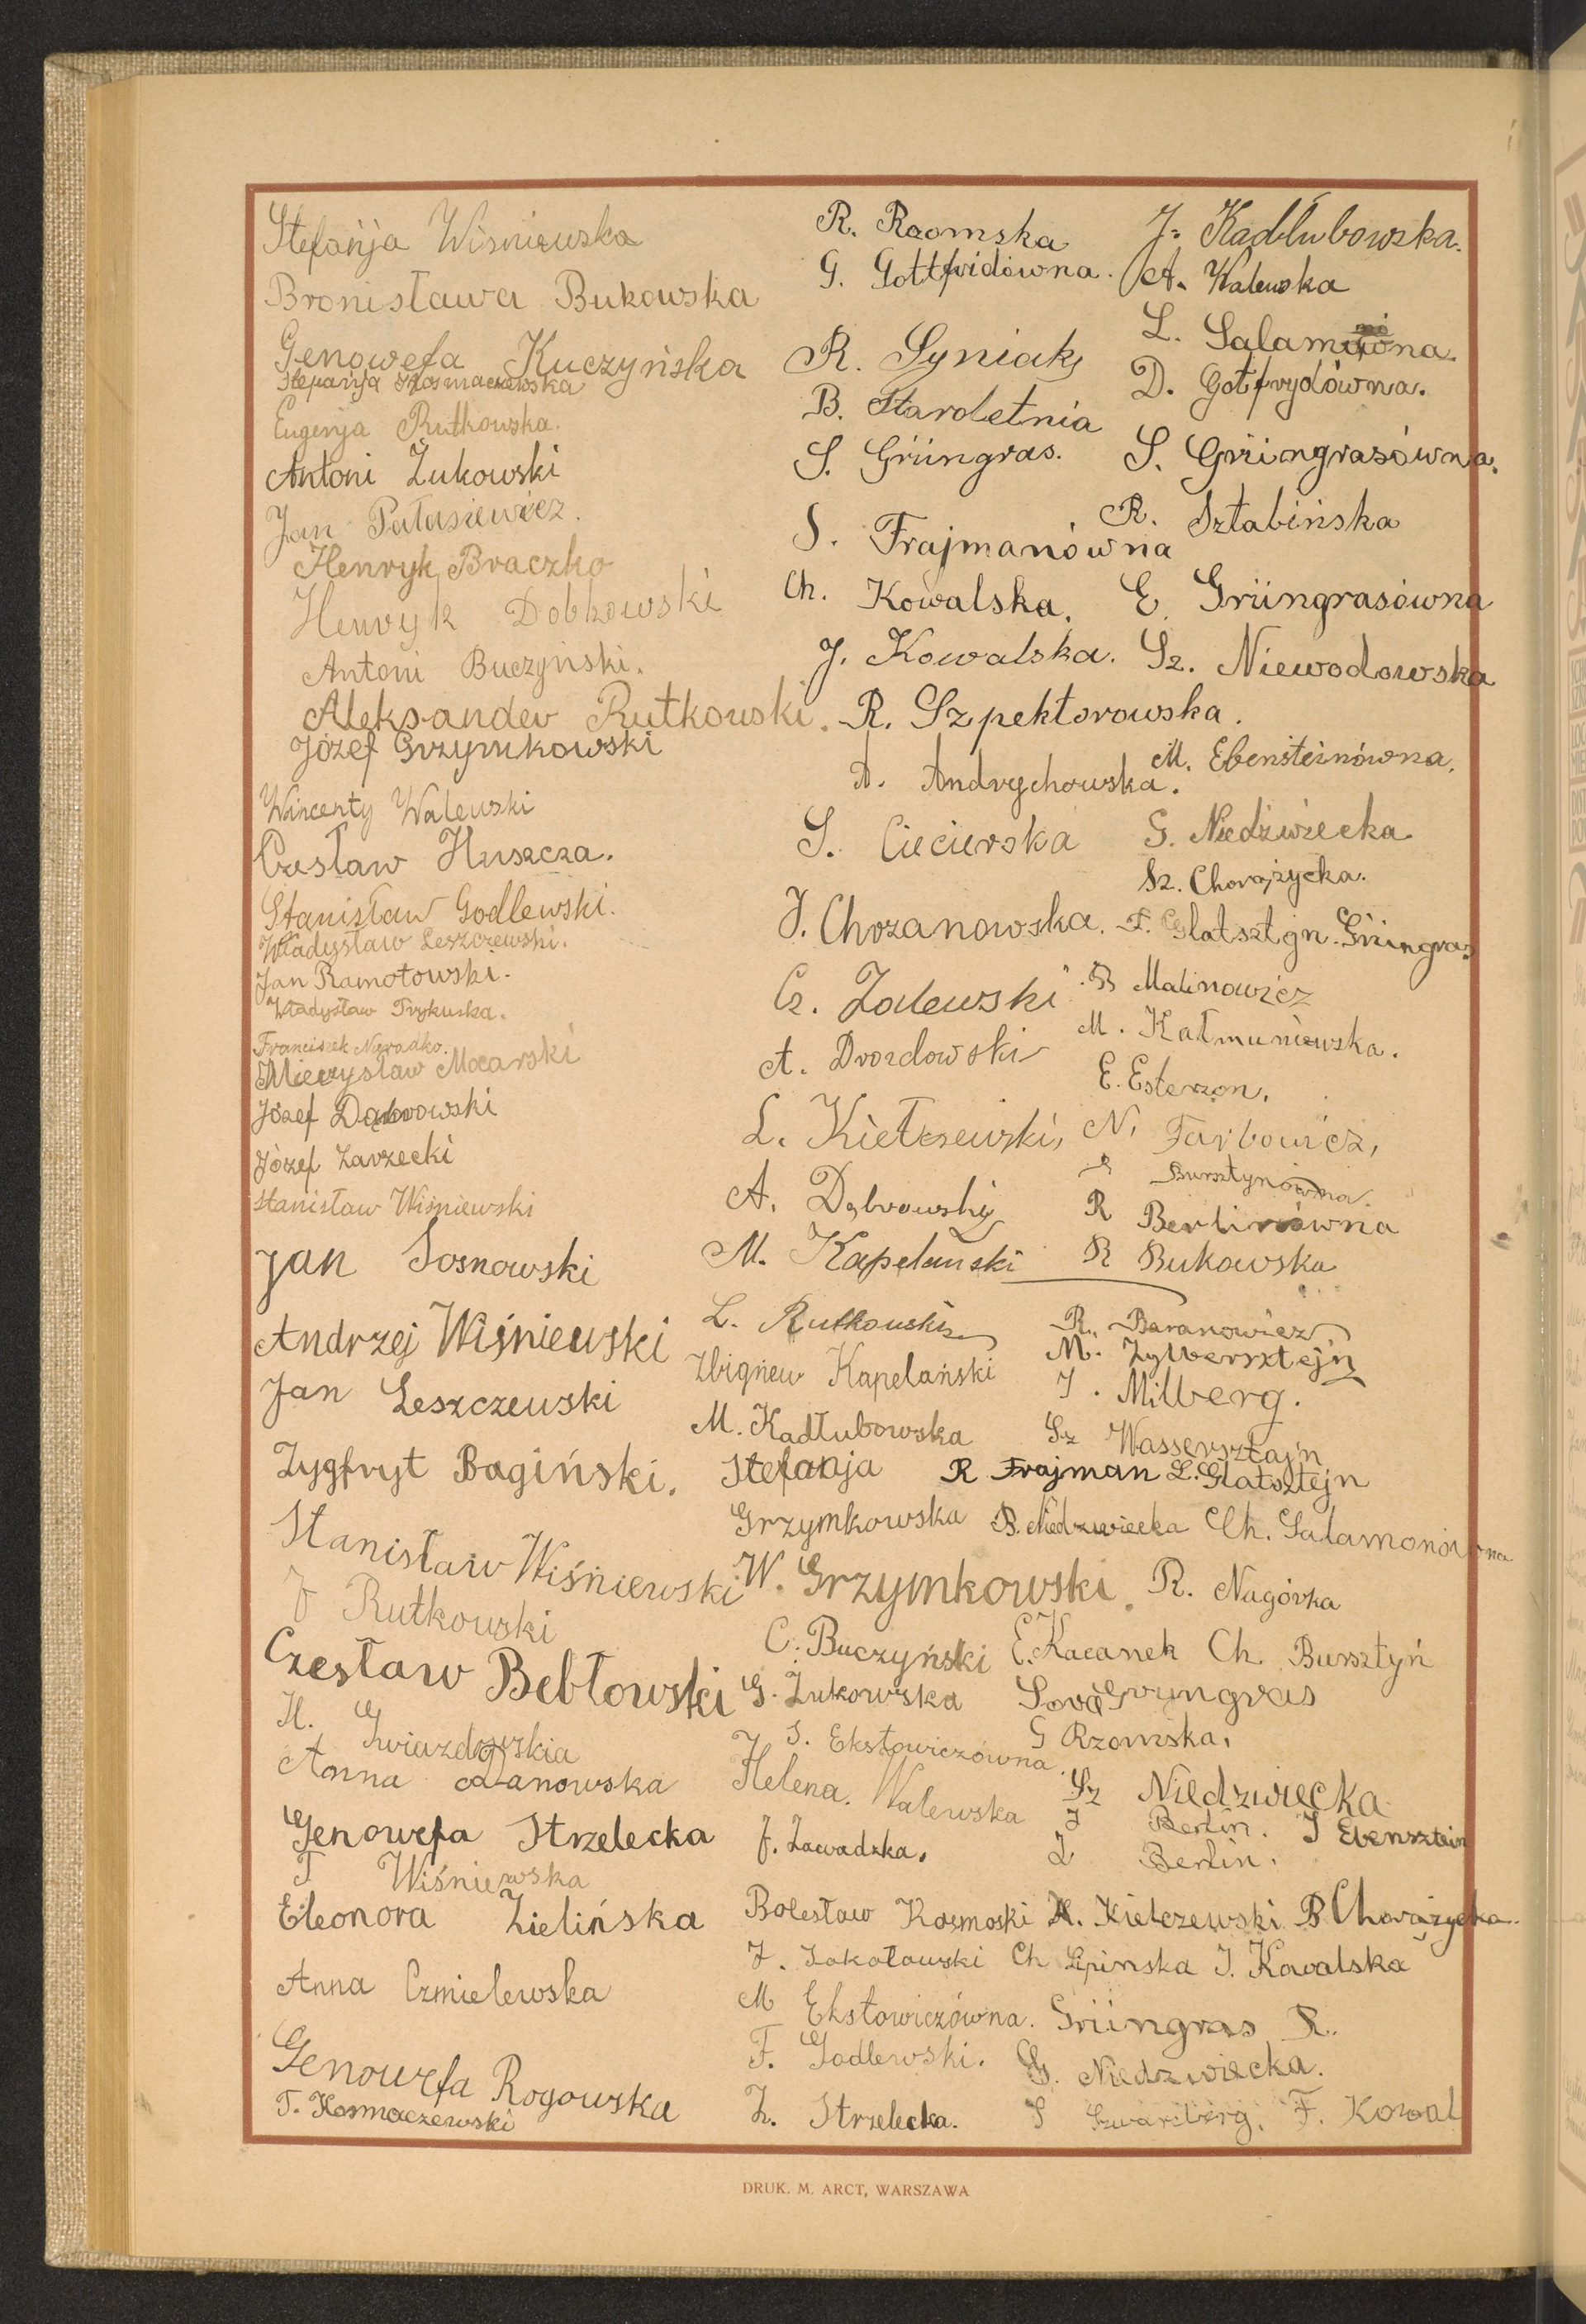 Stefanja Wiśniewska
Bronisława Bukowska
Genowefa Kuczyńska
Stefanja Kosmaczewska
Eugenja Rutkowska.
Antoni Żukowski
Jan Pałasiewicz.
Henryk Braczko
Henryk Dobkowski
Antoni Buczyński.
Aleksander Rutkowski.
Józef Grzymkowski
Wincenty Walewski
Czesław Huszcza.
Stanisław Godlewski.
Władysław Leszczewski.
Jan Ramotowski.
Władysław Trykuska.
Franciszek Naradko.
Mieczysław Mocarski
Józef Dąbrowski
Józef Zarzecki
Stanisław Wiśniewski
Jan Sosnowski
Andrzej Wiśniewski
Jan Leszczewski
Zygfryt Bagiński.
Stanisław Wiśniewski
J Rutkowski
Czesław Bebłowski
H. Gwiazdowskia
Anna Danowska
Genowefa Strzelecka
T Wiśniewska
Eleonora Zielińska
Anna Czmielewska
Genowefa Rogowska
T. Kosmaczewski
R. Rzomska
G. Gottfridówna.
R. Syniak
B. Staroletnia
S. Grüngras.
S. Frajmanówna
Ch. Kowalska.
J. Kowalska.
R. Szpektorowska.
A. Andrychowska.
S. Ciecierska
J. Chrzanowska.
Cz. Zalewski
A. Drozdowski
L. Kiełczewski,
A. Dąbrowski
M. Kapelański
L. Rutkowski
Zbigniew Kapelański
M. Kadłubowska
Stefanja
Grzymkowska
W. Grzymkowski.
C. Buczyński
G. Żukowska
S. Ekstowiczówna.
Helena. Walewska
J. Zawadzka.
Bolesław Kosmoski
J. Sokołowski
M Ekstowiczówna.
F. Godlewski.
Z. Strzelecka.
J. Kadłubowska.
A. Walewska
L. Salamonówna.
D. Gotfrydówna.
S. Grüngrasówna.
R. Sztabińska
E. Grüngrasówna
Sz. Niewodowska
M. Ebensteinówna.
G. Niedźwiecka
Sz. Chorążycka.
F. Glatsztejn. Grüngras
B Malinowicz
M. Kałmuniewska.
E. Esterzon.
N. Farbowicz,
Bursztynówna
R Berlinówna
R Bukowska
R. Baranowicz
M. Zylbersztejn
J. Milberg.
Sz Wassersztajn
R Frajman L. Glatsztejn
B. Niedzwiecka Ch. Salamonówna
R. Nagórka
E. Kacanek Ch. Bursztyń
Sora Grüngras
G Rzomska.
Sz Niedzwiecka
J Berlin. J Ebensztein
L Berlin.
H. Kiełczewski B Chorążycka.
Ch Lipinska J. Kowalska
Grüngras R.
G. Niedzwiecka.
S Szwarcberg. F. Kowal
DRUK. M. ARCT, WARSZAWA